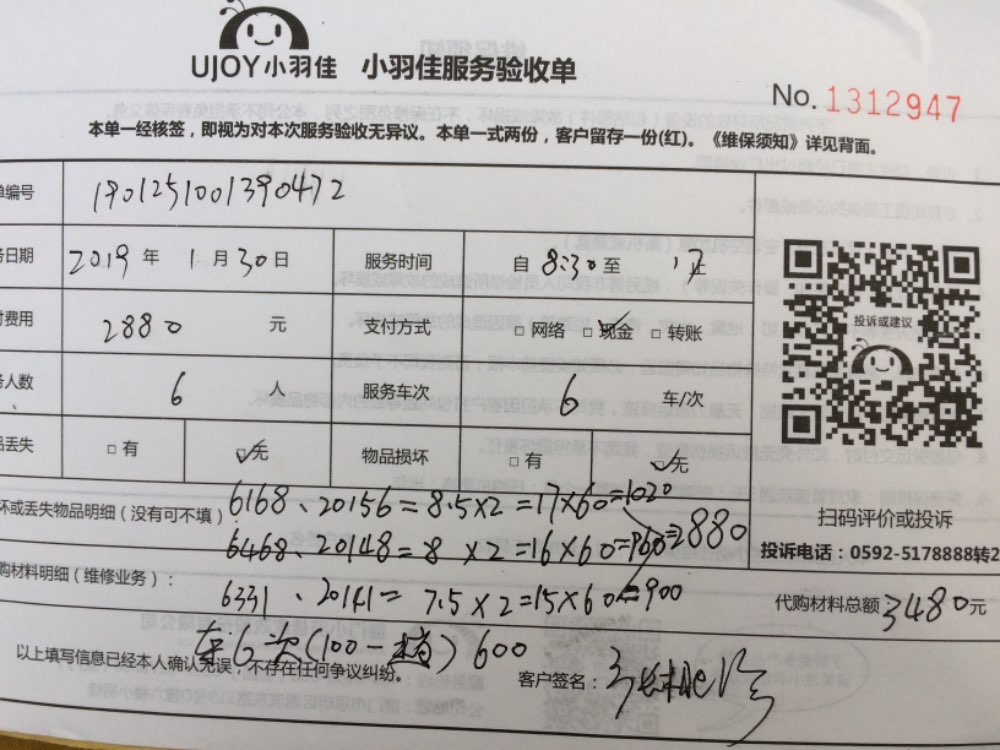 UJOY小羽佳 小羽佳服务验收单
No. 1312947
本单一经核签，即视为对本次服务验收无异议。本单一式两份，客户留存一份(红)。《维保须知》详见背面。
单编号 1901251001390472
务日期 2019 年 1 月 30 日 服务时间 自 8:30 至
付费用 2880 元 支付方式 □ 网络 ☑ 现金 □ 转账
务人数 6 人 服务车次 6 车/次
品丢失 □ 有 ☑ 无 物品损坏 □ 有 ☑ 无
投诉或建议
扫码评价或投诉
投诉电话：0592-5178888转2
坏或丢失物品明细（没有可不填）: 6168、20156=8.5×2=17×60=1020
6468、20148=8×2=16×60=960=2880
购材料明细（维修业务）:
6331、20141=7.5×2=15×60=900
代购材料总额 3480元
车6次(100一趟) 600
以上填写信息已经本人确认无误，不存在任何争议纠纷。 客户签名：